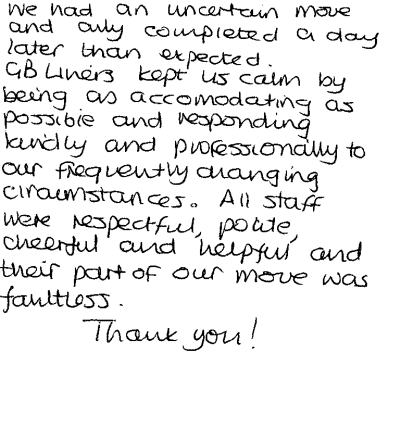 we had an uncertain move
and only completed a day
later than expected.
GB Liners kept us calm by
being as accomodating as
possible and responding
kindly and professionally to
our frequently changing
circumstances. All staff
were respectful, polite,
cheerful and helpful and
their part of our move was
faultless.
Thank you!